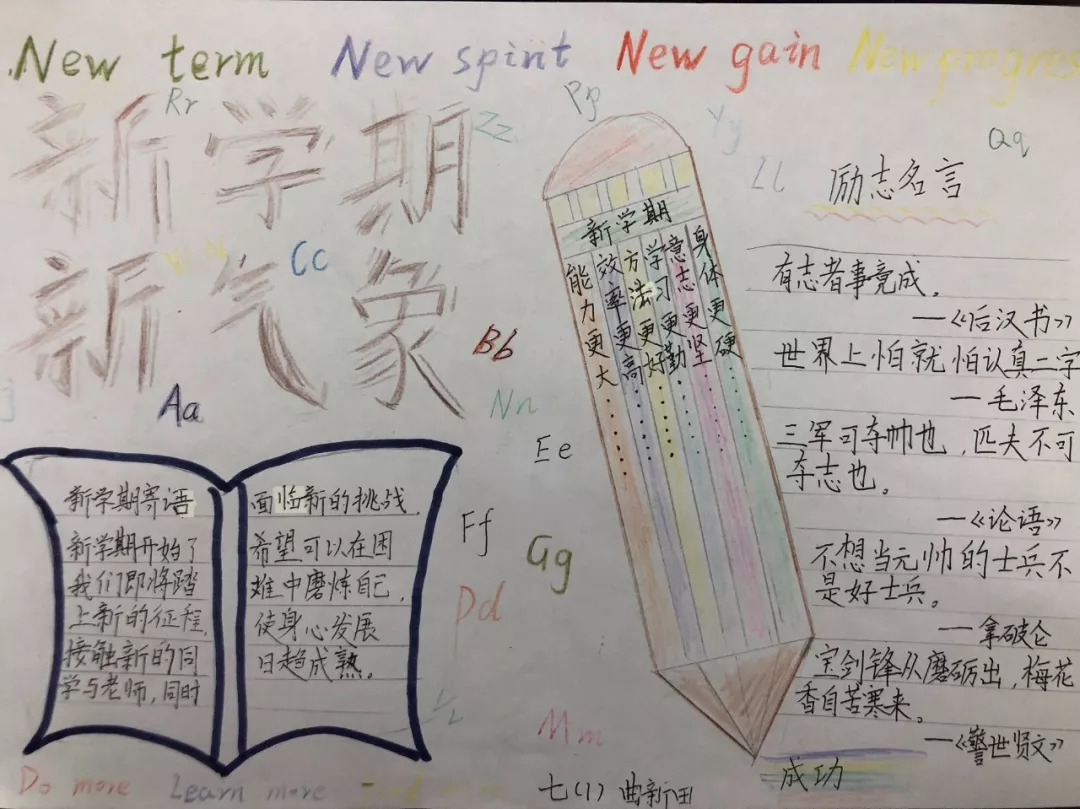 New term New spirit New gain New progres
Rr
Pp
Zz
Yy
Qq
新学期
新气象
Cc
Ll
励志名言
Bb
Aa
Nn
Ee
Ff
Gg
Dd
Mm
新学期
能力更大......
效率更高......
方法更好......
学习更勤......
意志更坚......
身体更硬......
成功
有志者事竟成。
—《后汉书》
世界上怕就怕认真二字
—毛泽东
三军可夺帅也,匹夫不可
夺志也。
—《论语》
不想当元帅的士兵不
是好士兵。
—拿破仑
宝剑锋从磨砺出,梅花
香自苦寒来。
—《警世贤文》
新学期寄语
新学期开始了
我们即将踏
上新的征程,
接触新的同
学与老师,同时
面临新的挑战,
希望可以在困
难中磨炼自己,
使身心发展
日趋成熟。
Do more Learn more
七(1) 曲新